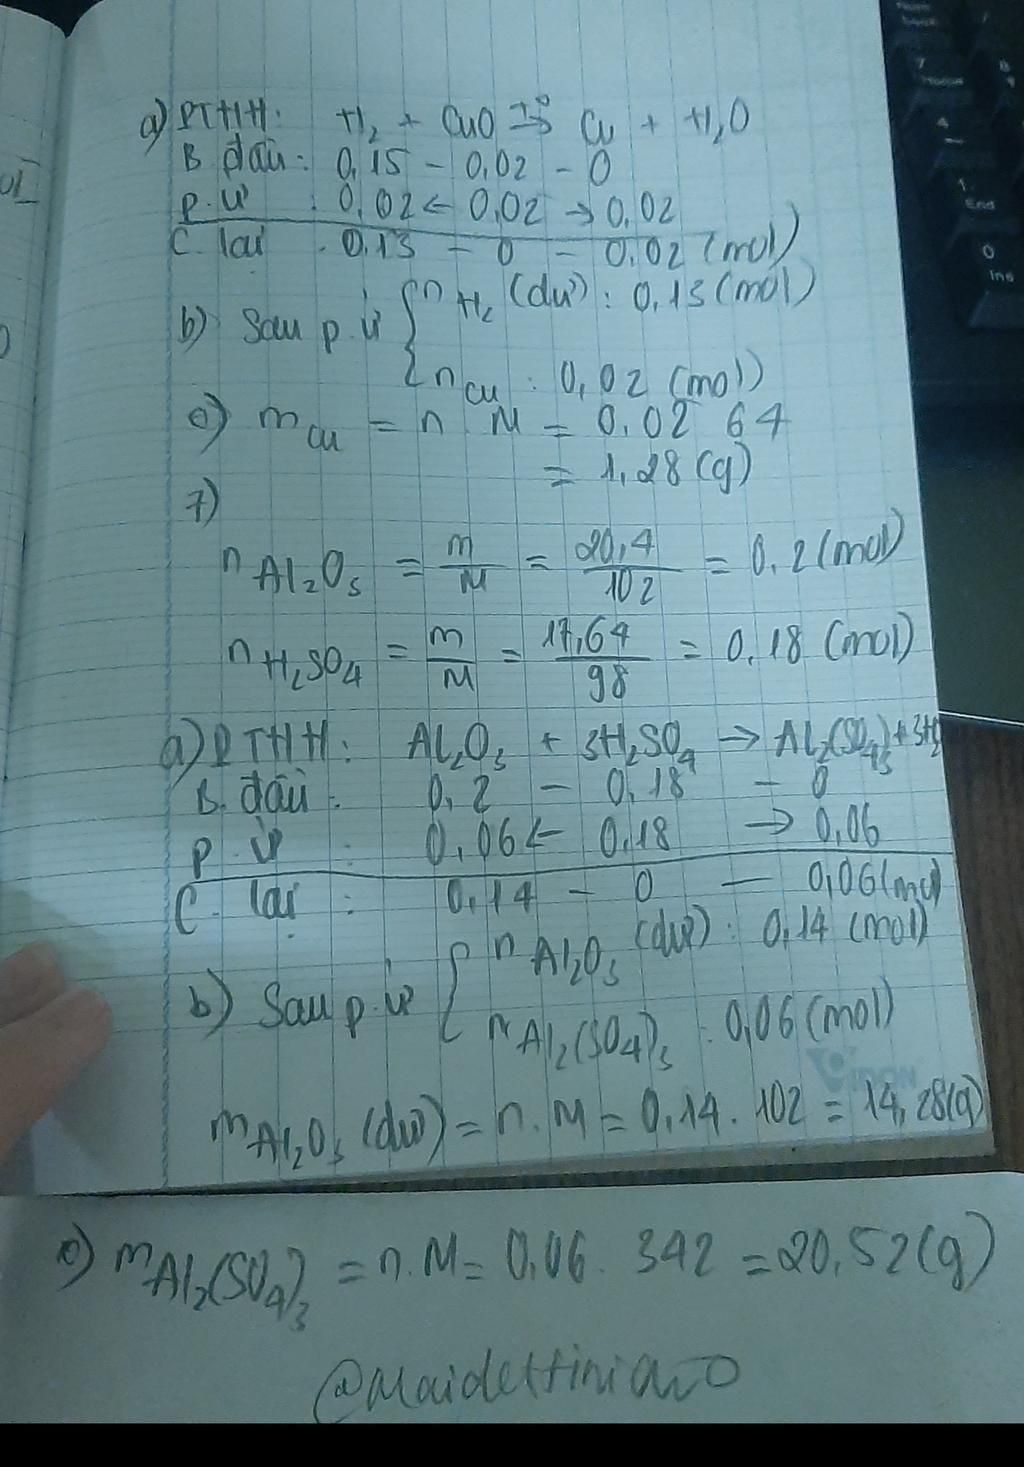 a) PTHH: H₂ + CuO →t° Cu + H₂O
B. đầu: 0,15 - 0,02 - 0
p.ứ : 0,02 ← 0,02 → 0,02
C. lại : 0,13 - 0 - 0,02 (mol)
b) Sau p.ứ { n H₂ (dư) : 0,13 (mol)
n Cu : 0,02 (mol)
c) m Cu = n M = 0,02 64
= 1,28 (g)
7)
n Al₂O₃ = m/M = 20,4/102 = 0,2 (mol)
n H₂SO₄ = m/M = 17,64/98 = 0,18 (mol)
a) PTHH: Al₂O₃ + 3H₂SO₄ → Al₂(SO₄)₃ + 3H₂
B. đầu : 0,2 - 0,18 - 0
p.ứ : 0,06 ← 0,18 → 0,06
C. lại : 0,14 - 0 - 0,06 (mol)
b) Sau p.ứ { n Al₂O₃ (dư) : 0,14 (mol)
n Al₂(SO₄)₃ : 0,06 (mol)
m Al₂O₃ (dư) = n.M = 0,14 . 102 = 14,28 (g)
c) m Al₂(SO₄)₃ = n.M = 0,06 . 342 = 20,52 (g)